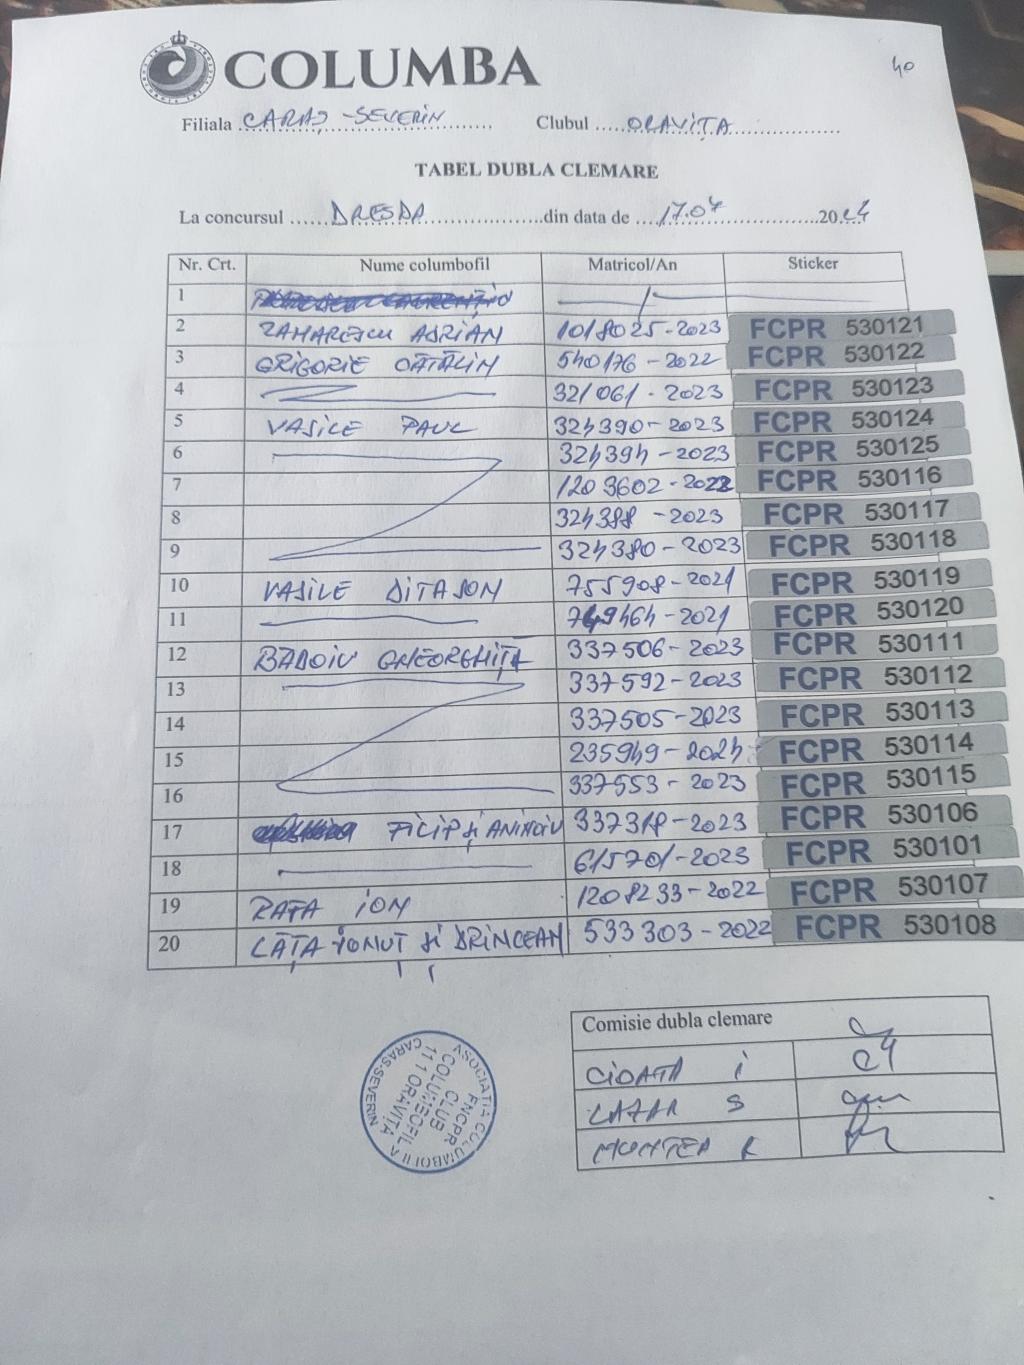 COLUMBA
40
Filiala CARAȘ-SEVERIN Clubul ORAVIȚA
TABEL DUBLA CLEMARE
La concursul DRESDA din data de 17.07 2024
Nr. Crt. Nume columbofil Matricol/An Sticker
1
2 ZAHARESCU ADRIAN 1018025-2023 FCPR 530121
3 GRIGORIE CĂTĂLIN 540176-2022 FCPR 530122
4 321061-2023 FCPR 530123
5 VASILE PAUL 324390-2023 FCPR 530124
6 324394-2023 FCPR 530125
7 1203602-2022 FCPR 530116
8 324388-2023 FCPR 530117
9 324380-2023 FCPR 530118
10 VASILE 755908-2021 FCPR 530119
11 749464-2021 FCPR 530120
12 BĂDOIU GHEORGHIȚĂ 337506-2023 FCPR 530111
13 337592-2023 FCPR 530112
14 337505-2023 FCPR 530113
15 235949-2024 FCPR 530114
16 337553-2023 FCPR 530115
17 FILIP și 337318-2023 FCPR 530106
18 615701-2023 FCPR 530101
19 RAȚA ION 1208233-2022 FCPR 530107
20 LAȚA IONUȚ și DRINCEAN 533303-2022 FCPR 530108
Comisie dubla clemare
CIOATA I
LAZAR S
MUNTEA R
ASOCIATIA COLUMBOFILA
CARAS-SEVERIN
FNCPR
CLUB
COLUMBOFIL
111 ORAVIȚA